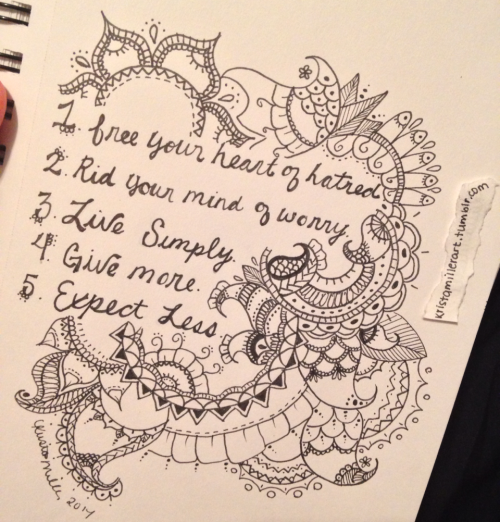 1. free your heart of hatred.
2. Rid your mind of worry.
3. Live Simply.
4. Give more.
5. Expect Less.
kristamillerart.tumblr.com
Krista Miller, 2014